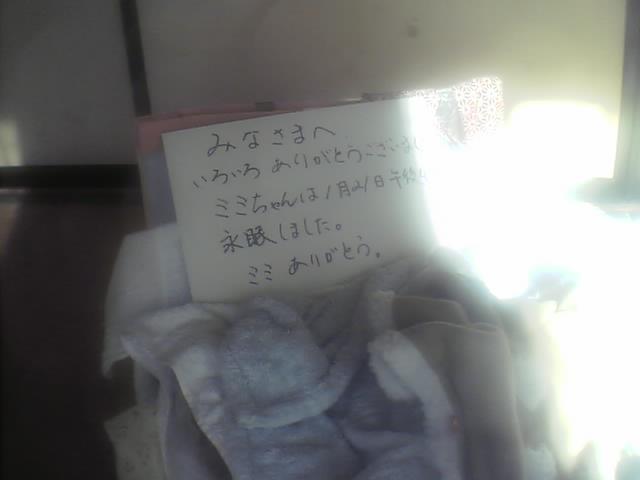 みなさまへ
いろいろ ありがとうございまし
ミミちゃんは1月21日午後
永眠しました。
ミミ ありがとう。